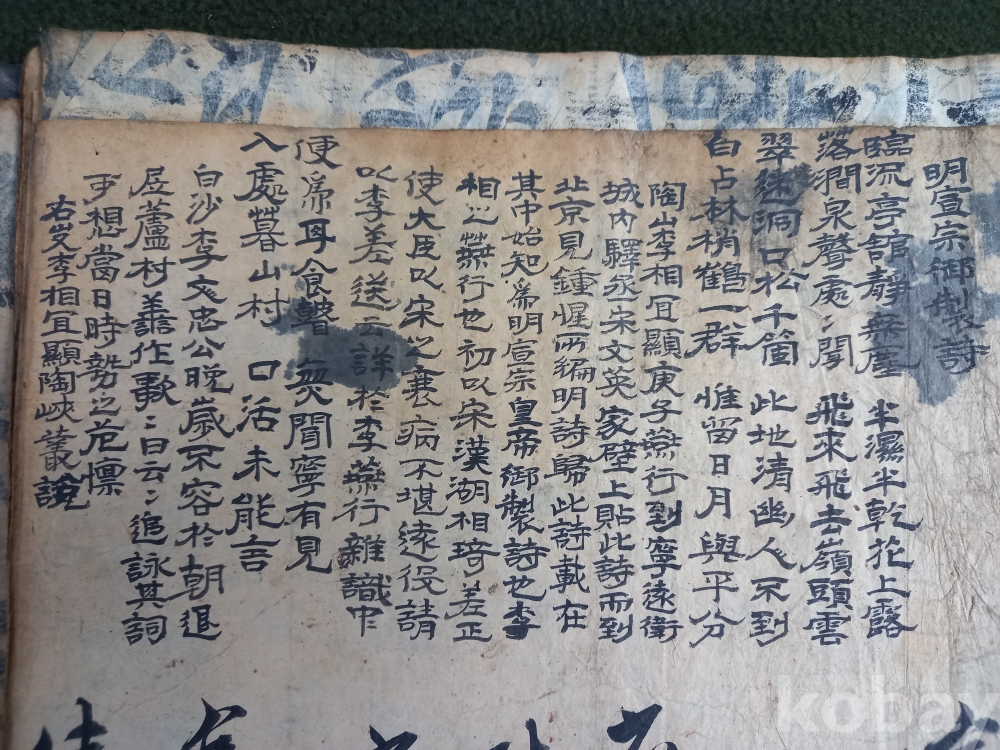 明宣宗御製詩
臨流亭舘静無塵　半濕半乾花上露
落澗泉聲處〻聞　飛來飛去嶺頭雲
翠迷洞口松千箇　此地清幽人不到
白占林梢鶴一群　惟留日月與平分
陶山李相宜顯庚子燕行到寧遠衛
城内驛丞宋文英家壁上貼此詩而到
北京見鍾惺所編明詩歸此詩載在
其中始知爲明宣宗皇帝御製詩也李
相之燕行也初以宋漢湖相琦差正
使大臣以宋之衰病不堪遠役請
以李差送云詳於李燕行雜識中
便爲耳食聾　無聞寧有見
入處暮山村　口活未能言
白沙李文忠公晩歲不容於朝退
居蘆村善作歌〻曰云〻追詠其詞
可想當日時勢之危懍
右岁李相宜顯陶峽叢說
kobay